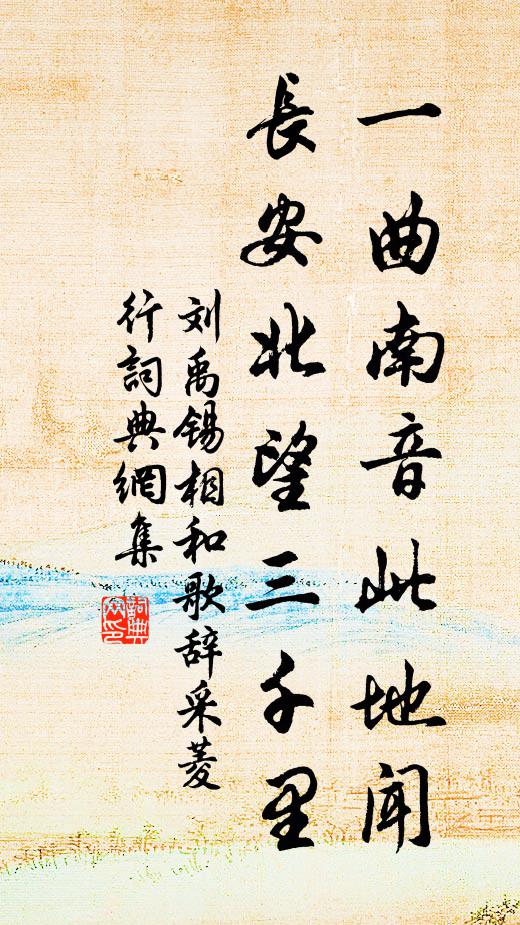 一曲南音此地聞
長安北望三千里
刘禹锡相和歌辞采菱
行詞典網集